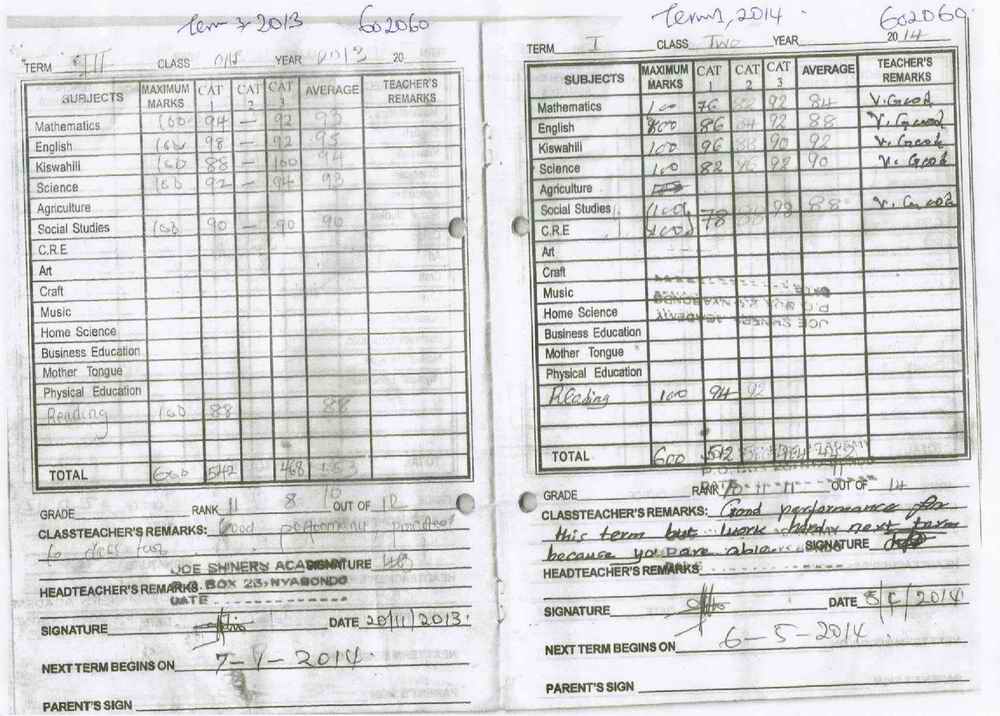 Term 3 2013 602060
TERM III CLASS ONE YEAR 2013 20
SUBJECTS MAXIMUM MARKS CAT 1 CAT 2 CAT 3 AVERAGE TEACHER'S REMARKS
Mathematics 100 94 – 92 93
English 100 98 – 92 95
Kiswahili 100 88 – 100 94
Science 100 92 – 94 93
Agriculture
Social Studies 100 90 – 90 90
C.R.E
Art
Craft
Music
Home Science
Business Education
Mother Tongue
Physical Education
Reading 100 88 88
TOTAL 600 542 468
GRADE RANK 11 8 10 OUT OF 12
CLASSTEACHER'S REMARKS: Good performance promoted
to class two
JOE SHINERS ACADEMY SIGNATURE
HEADTEACHER'S REMARKS P.O. BOX 23, NYABONDO
DATE
SIGNATURE DATE 20/11/2013
NEXT TERM BEGINS ON 7-1-2014
PARENT'S SIGN
Term 1, 2014 602060
TERM I CLASS TWO YEAR 2014
SUBJECTS MAXIMUM MARKS CAT 1 CAT 2 CAT 3 AVERAGE TEACHER'S REMARKS
Mathematics 100 76 92 84 V. Good
English 100 86 92 88 V. Good
Kiswahili 100 96 90 92 V. Good
Science 100 82 98 90 V. Good
Agriculture
Social Studies 100 78 98 88 V. Good
C.R.E
Art
Craft
Music
Home Science
Business Education
Mother Tongue
Physical Education
Reading 100 94 92
TOTAL 600 512
GRADE RANK 10 - 11 - 11 OUT OF 14
CLASSTEACHER'S REMARKS: Good performance for
this term but work hard next term
because you are able SIGNATURE
HEADTEACHER'S REMARKS
SIGNATURE DATE 2014
NEXT TERM BEGINS ON 6-5-2014
PARENT'S SIGN